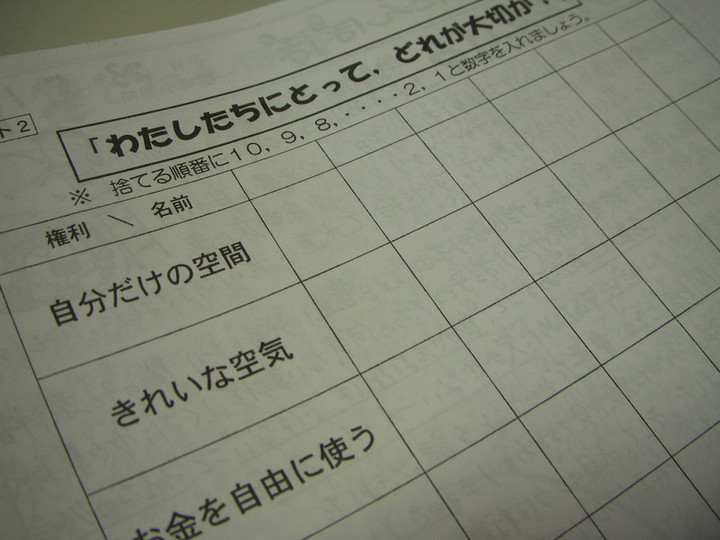 ト2
「わたしたちにとって、どれが大切か
※ 捨てる順番に10，9，8，・・・・2，1と数字を入れましょう。
権利 ＼ 名前
自分だけの空間
きれいな空気
お金を自由に使う